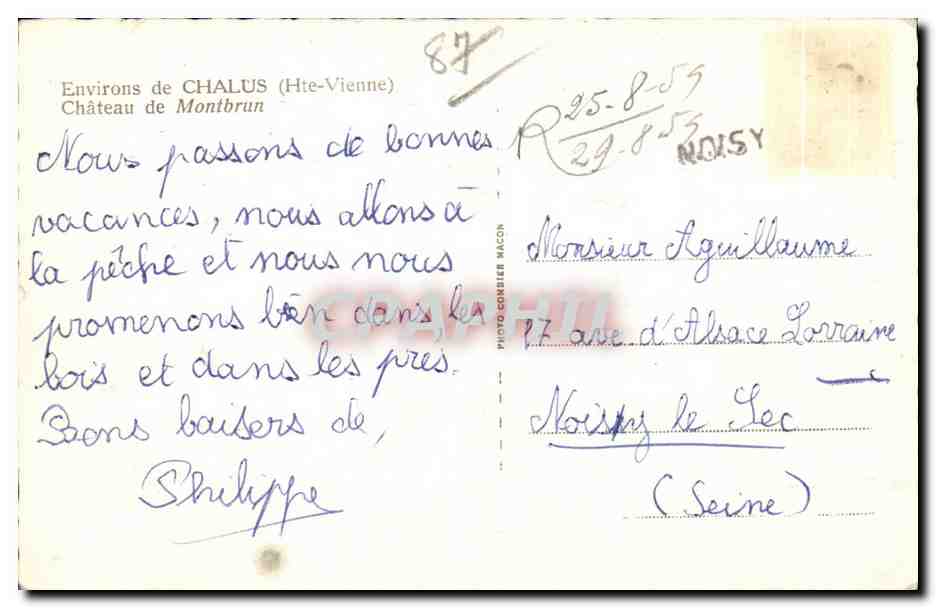 87
Environs de CHALUS (Hte-Vienne)
Château de Montbrun
Nous passons de bonnes
vacances, nous allons à
la pêche et nous nous
promenons bien dans, les
bois et dans les près.
Bons baisers de,
Philippe
PHOTO COMBIER MACON
R 25-8-59
29-8-59
NOISY
Monsieur Aguillaume
17 ave d'Alsace Lorraine
Noisy le Sec
(Seine)
CPAPHIL